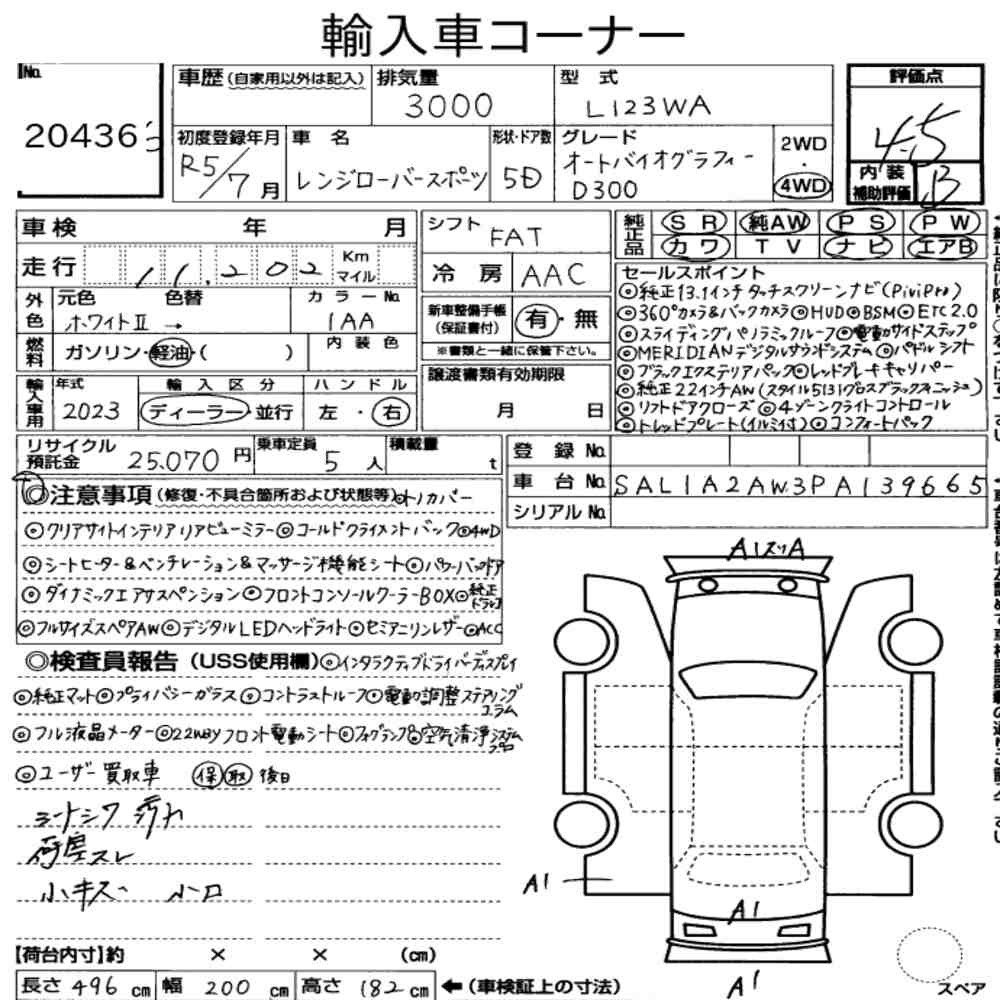 輸入車コーナー
No. 20436
車歴 (自家用以外は記入) 排気量 3000 型式 L123WA
評価点 4.5
初度登録年月 R5/7月 車名 レンジローバースポーツ 形状・ドア数 5D グレード オートバイオグラフィー D300 2WD・4WD
内装補助評価 B
車検 年 月
シフト FAT
純正品 SR 純AW PS PW
カワ TV ナビ エアB
走行 11,202 Km マイル
冷房 AAC
外色 元色 色替 カラーNo.
ホワイトII → 1AA
新車整備手帳(保証書付) 有・無
※書類と一緒に保管下さい。
燃料 ガソリン・軽油・( ) 内装色
輸入車用 年式 2023 輸入区分 ディーラー・並行 ハンドル 左・右
譲渡書類有効期限
月 日
セールスポイント
◎純正13.1インチタッチスクリーンナビ(PiviPro)
◎360°カメラ&バックカメラ◎HUD◎BSM◎ETC2.0
◎スライディングパノラミックルーフ◎電動サイドステップ
◎MERIDIANデジタルサウンドシステム◎パドルシフト
◎ブラックエクステリアパック◎レッドブレーキキャリパー
◎純正22インチAW(スタイル5131グロスブラックフィニッシュ)
◎ソフトドアクローズ◎4ゾーンクライトコントロール
◎トレッドプレート(イルミ付)◎コンフォートパック
リサイクル預託金 25,070円 乗車定員 5人 積載量 t
登録No.
車台No. SAL1A2AW3PA139665
シリアルNo.
◎注意事項 (修復・不具合箇所および状態等)◎トノカバー
◎クリアサイトインテリアリアビューミラー◎コールドクライメントパック◎4WD
◎シートヒーター&ベンチレーション&マッサージ機能シート◎パワーバックドア
◎ダイナミックエアサスペンション◎フロントコンソールクーラーBOX◎純正ドラレコ
◎フルサイズスペアAW◎デジタルLEDヘッドライト◎セミアニリンレザー◎ACC
◎検査員報告 (USS使用欄)◎インタラクティブドライバーディスプレイ
◎純正マット◎プライバシーガラス◎コントラストルーフ◎電動調整ステアリングコラム
◎フル液晶メーター◎22wayフロント電動シート◎フォグランプ◎空気清浄システムプロ
◎ユーザー買取車 保取後日
シートシワ 汚れ
荷室スレ
小キズ 小凹
A1スリA
A1
A1
A1
スペア
【荷台内寸】約 × × (cm)
長さ 496 cm 幅 200 cm 高さ 182 cm ←(車検証上の寸法)